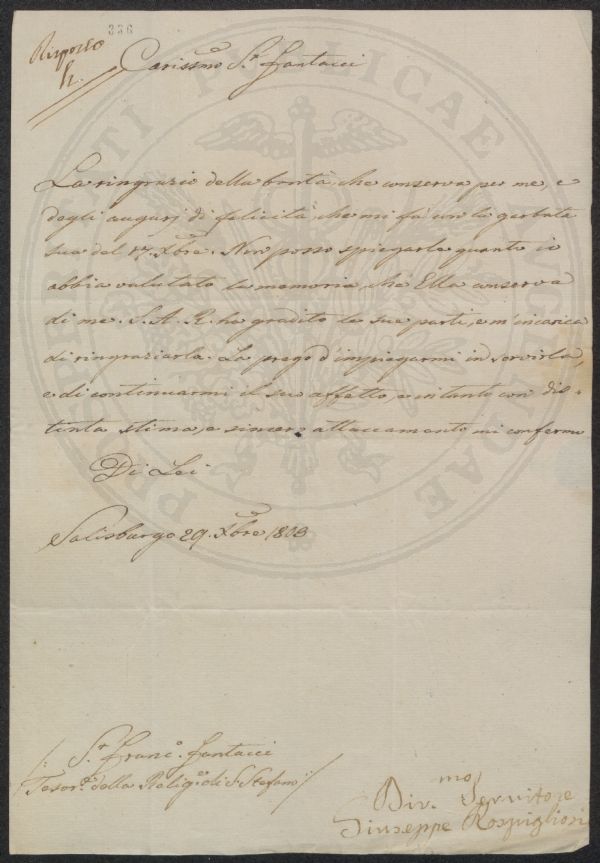 336
Risposto
li.
Carissmo Sr. Fantacci
La ringrazio della bontà, che conserva per me, e
degli augurj di felicità, che mi fà con la garbata
sua del 17. Xbre. Non posso spiegarle quanto io
abbia valutato la memoria, che Ella conserva
di me. S. A. R. ha gradito le sue parti, e m'incarica
di ringraziarla. La prego d'impiegarmi in servirla,
e di continuarmi il suo affetto, e intanto con dis-
tinta stima, e sincero attaccamento mi confermo
Di Lei
Salisburgo 29. Xbre 1803
/: Sr. Franco. Fantacci
Tesore. della Religne. di S. Stefano :/
Div.mo Servitore
Giuseppe Rospigliosi
PUBLICAE